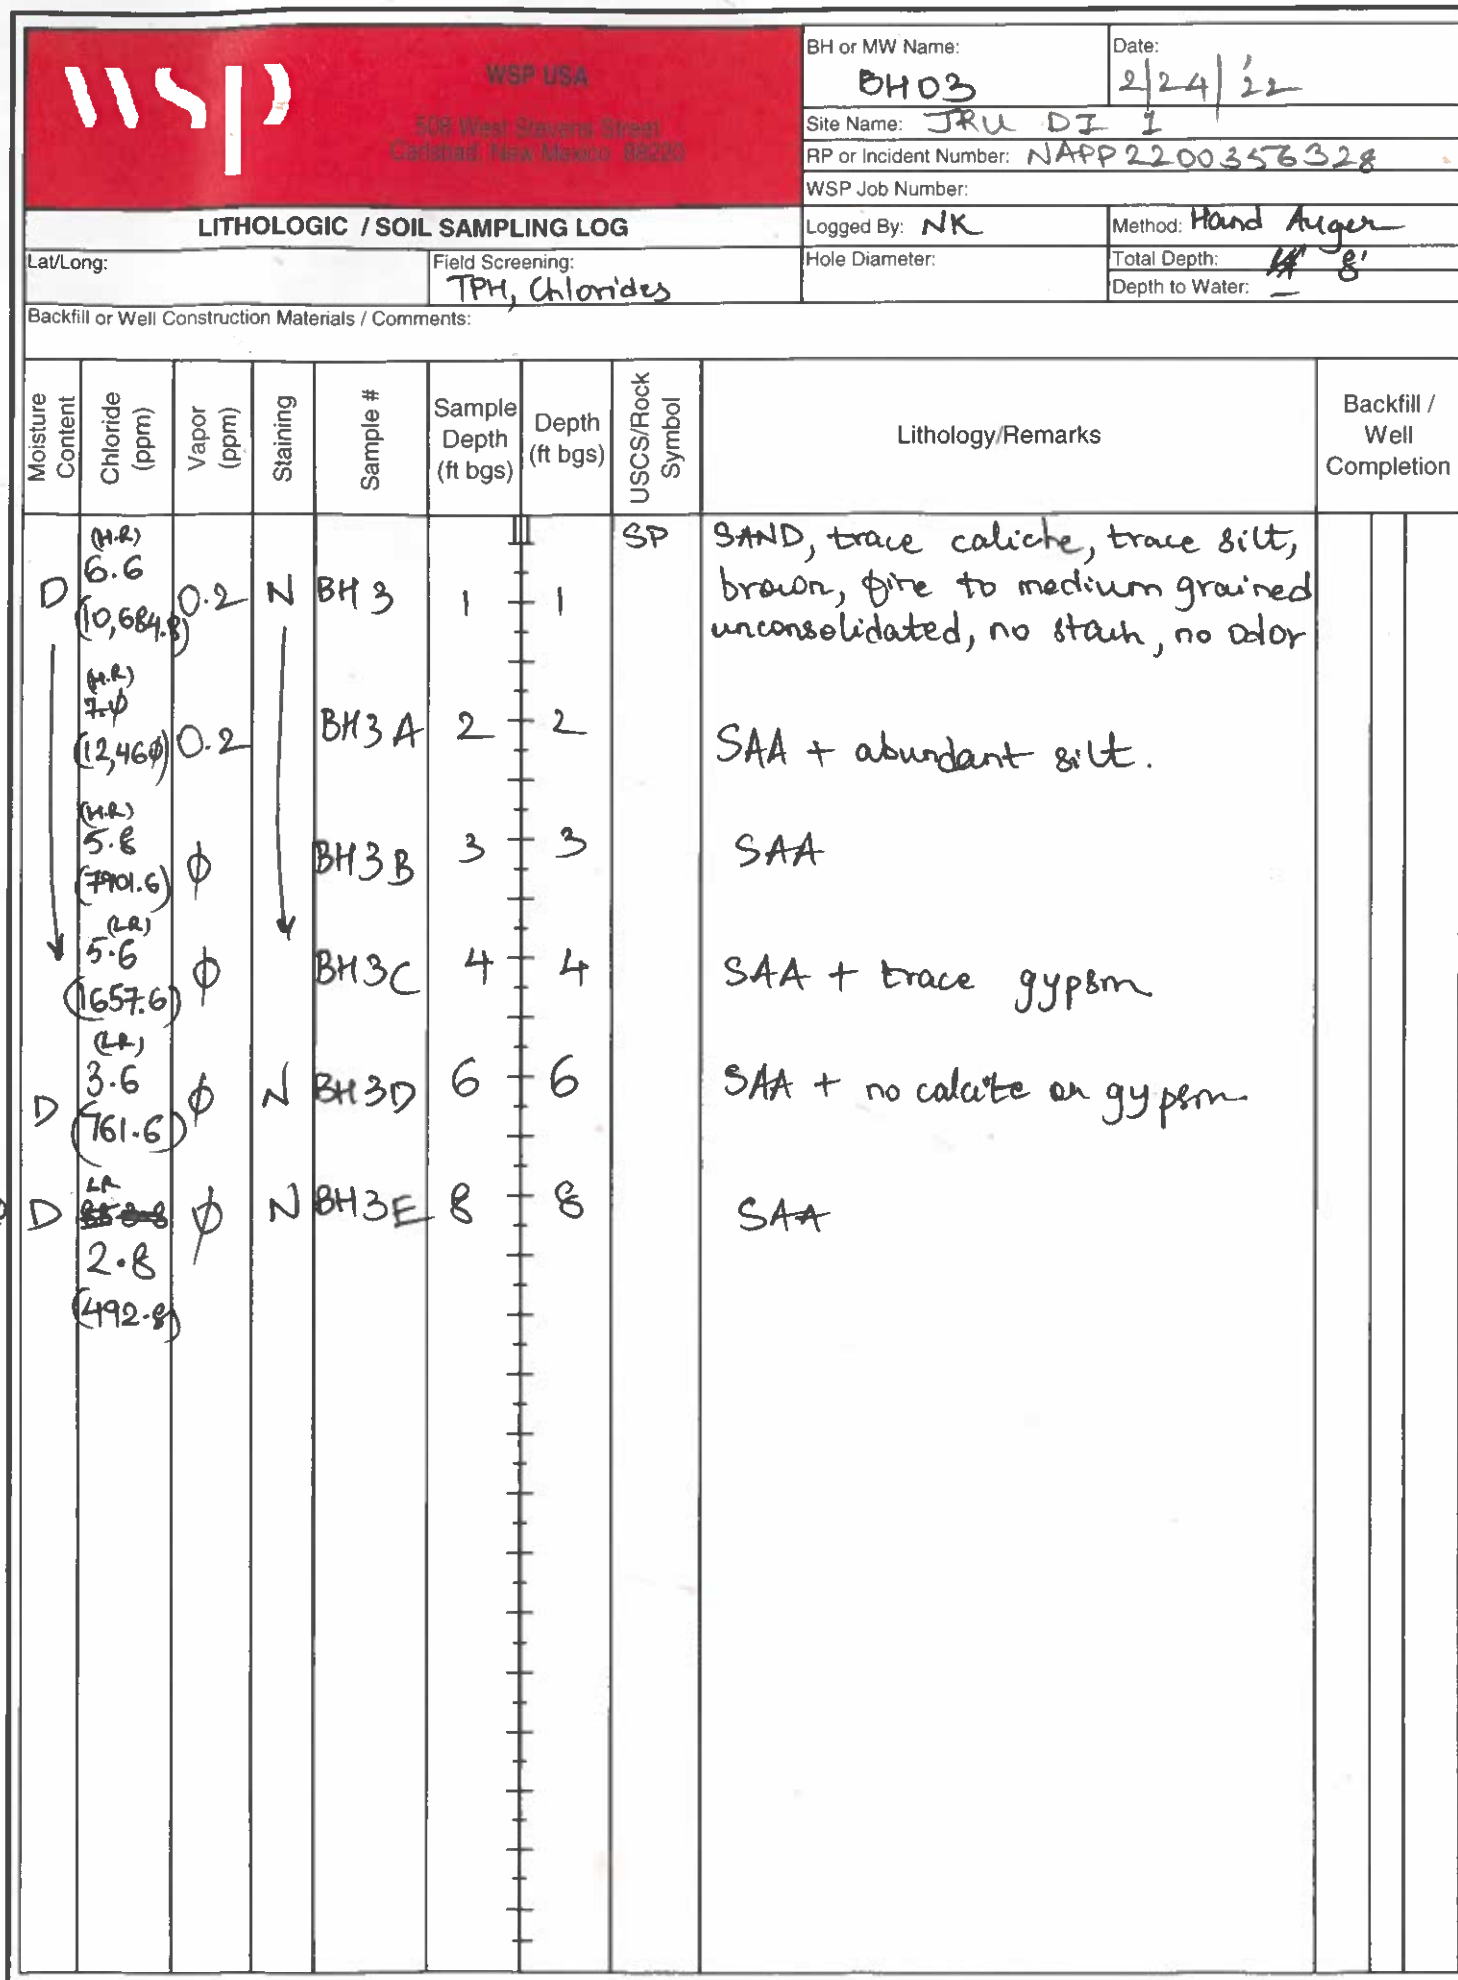 wsp
WSP USA
508 West Stevens Street
Carlsbad, New Mexico 88220
LITHOLOGIC / SOIL SAMPLING LOG
BH or MW Name: BH03
Date: 2/24/'22
Site Name: JRU DI 1
RP or Incident Number: NAPP2200356328
WSP Job Number:
Logged By: NK
Method: Hand Auger
Lat/Long:
Field Screening: TPH, Chlorides
Hole Diameter:
Total Depth: 8'
Depth to Water: –
Backfill or Well Construction Materials / Comments:
Moisture Content
Chloride (ppm)
Vapor (ppm)
Staining
Sample #
Sample Depth (ft bgs)
Depth (ft bgs)
USCS/Rock Symbol
Lithology/Remarks
Backfill / Well Completion
D (H.R) 6.6 (10,684.8) 0.2 N BH3 1 1 SP SAND, trace caliche, trace silt,
brown, fine to medium grained
unconsolidated, no stain, no odor
(H.R) 7.φ (12,46φ) 0.2 BH3A 2 2 SAA + abundant silt.
(H.R) 5.8 (7901.6) φ BH3B 3 3 SAA
(LR) 5.6 (1657.6) φ BH3C 4 4 SAA + trace gypsm
D (LR) 3.6 (761.6) φ N BH3D 6 6 SAA + no calcite or gypsm
D LR 2.8 (492.8) φ N BH3E 8 8 SAA